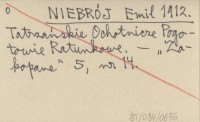 o NIEBRÓJ Emil 1912.
Tatrzańskie Ochotnicze Pogo-
towie Ratunkowe. — „Za-
kopane" 5, nr 14.